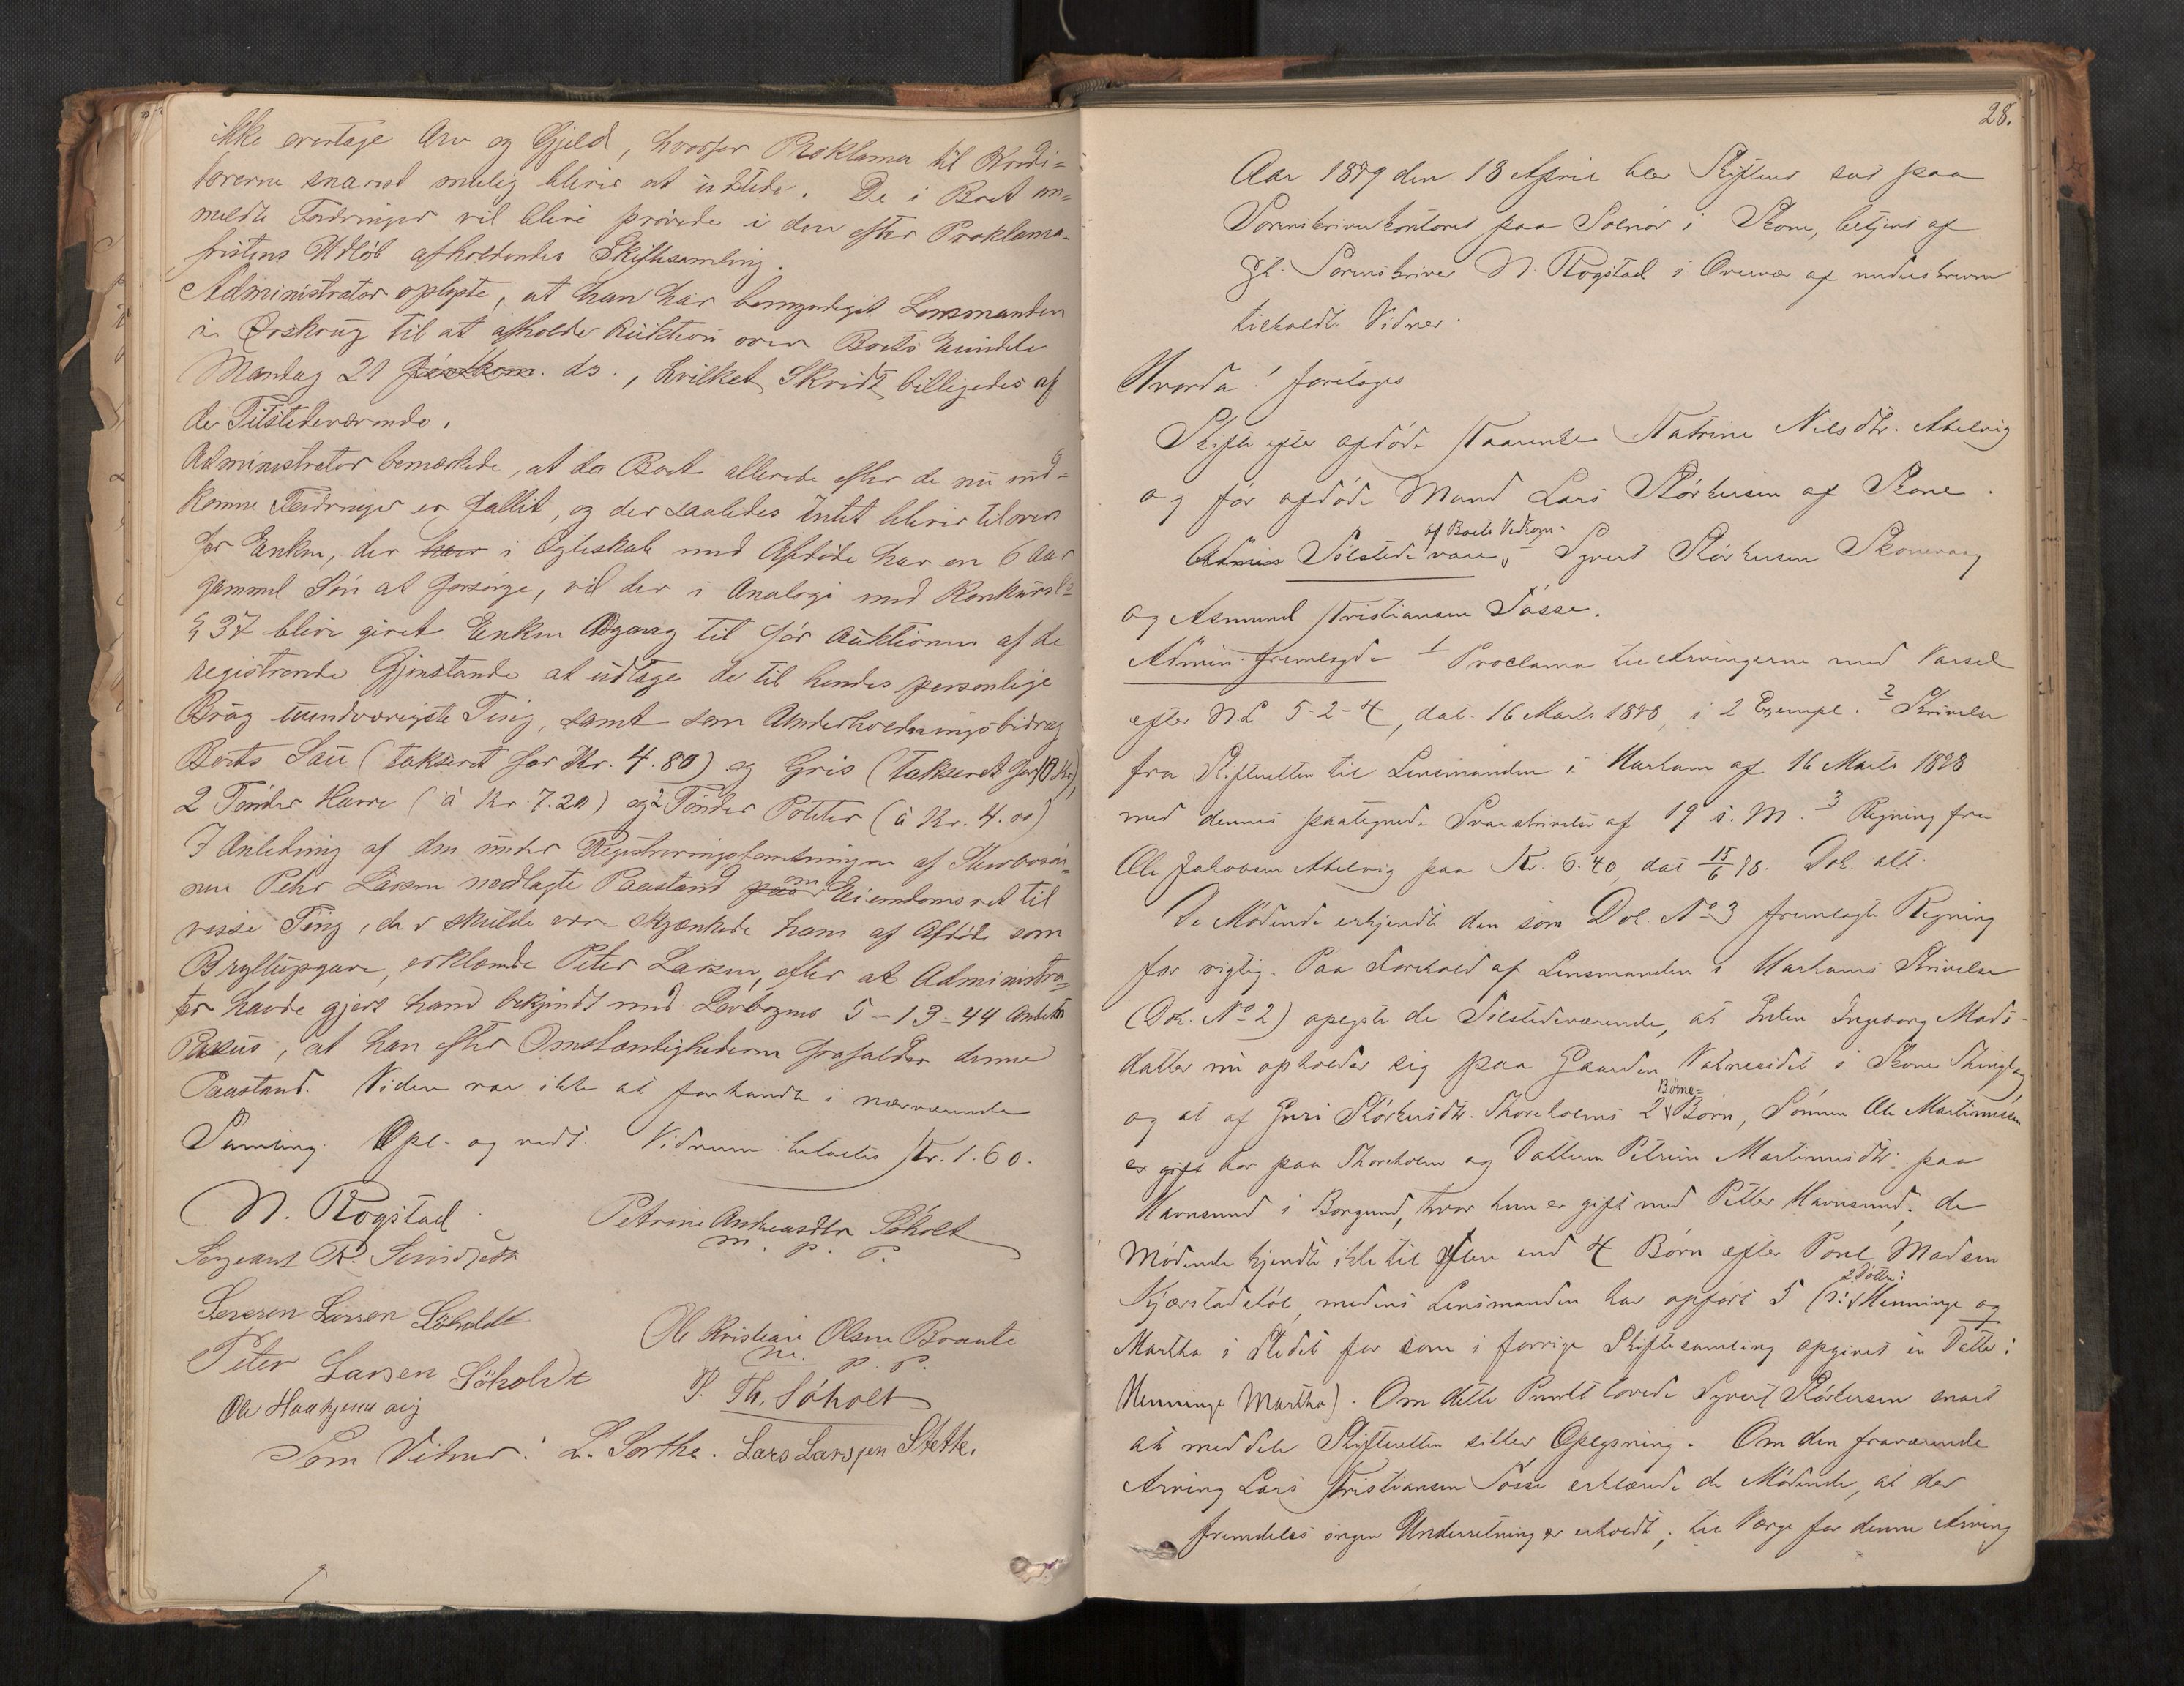 ikke overtage Arv og Gjeld, hvorfor Proklama til Kredi=
torerne snarest mulig bliver at udstede. De i Boet an=
meldte Fordringer vil blive prövede i den efter Proklama-
fristens Udlöb afholdendes Skiftesamling.
Administrator oplyste, at han har bemyndiget Lensmanden
i Örskoug til at afholde Auktion over Boets Eiendele
Mandag 21 förstkom. ds., hvilket Skridt billigedes af
de Tilstedeværende.
Administrator bemærkede, at da Boet allerede efter de nu ind=
komne Fordringer er fallit, og der saaledes Intet bliver tilovers
for Enken, der har i Ægteskab med Afdöde har en 6 Aar
gammel Sön at forsörge, vil der i Analogi med Konkursl.
§ 37 blive givet Enken Adgang til för Auktionen af de
registrerede Gjenstande at udtage de til hendes personlige
Brug uundværligste Ting, samt som Underholdningsbidrag
Boets Sau (takseret for Kr. 4.80) og Gris (takseret for 10 Kr),
2 Tönder Havre (à Kr. 7.20) og 2 Tönder Poteter (à Kr. 4.00)
I Anledning af den under Registreringsforretningen af
nen Peter Larsen nedlagte Paastand paa om Eiendomsret til
visse Ting, der skulde være skjænkede ham af Afdöde som
Bryllupgave, erklærede Peter Larsen, efter at Administra=
tor havde gjort ham bekjendt med Lovbogens 5-13-44 andet
Passus, at han efter Omstændighederne frafalder denne
Paastand. Videre var ikke at forhandle i nærværende
Samling. Opl. og vedt. Vidnerne betaltes Kr. 1.60.
N. Rogstad.
Petrine Andreasdtr Söholt
m. p. P.
Sergeant R.
Severen Larsen Söholdt
Ole Kristian Olsen Braute
m. p. P.
Peter Larsen Söholdt
P. Th. Söholt
Ole
Som Vidner: L. Sorthe. Lars Larssen Stette.
28.
Aar 1879 den 18 April blev Skifteret sat paa
Sorenskriverkontoret paa Solnör i Skone, betjent af
Sorenskriver N. Rogstad i Overvær af underskrevne
tilkaldte Vidner.
Hvorda! foretoges
Skifte efter afdöde Kaarenke Katrine Nilsdtr. Abelvig
og för afdöde Mand Lars Störkersen af Skone.
af Boets Vedkom.
Admin Tilstede vare, Syvert Störkersen Skonevaag
og Asmund Kristiansen Tösse.
Admin. fremlagde 1 Proclama til Arvingerne med Varsel
efter N.L 5-2-4, dat. 16 Marts 1878, i 2 Exempl. 2 Skrivelse
fra Skifteretten til Lensmanden i Harham af 16 Marts 1878
med dennes paategnede Svarskrivelse af 19 s. M. 3 Regning fra
Ole Jakobsen Abelvig paa Kr. 6.40 dat 15/6 78. Dok. alt.
De Mödende erkjendte den som Dol. No 3 fremlagte Regning
for rigtig. Paa Forehold af Lensmanden i Harhams Skrivelse
(Dok. No 2) oplyste de Tilstedeværende, at Enken Ingeborg Mads-
datter nu opholder sig paa Gaarden Vatneeidet i Skone Thinglag
Börne=
og at af Guri Störkersdtr. Skoreholms 2 Börn, Sönnen Ole Martinussen
er gift bor paa Skoreholm og Datteren Petrine Martinusdtr. paa
Havnsund i Borgund, hvor hun er gift med Petter Havnsund; de
Mödende kjendte ikke til flere end 4 Börn efter Poul Madsen
2 Döttre:
Kjærstadstöl, medens Lensmanden har opfört 5 (ɔ: Henninge og
Martha i Stedet for som i forrige Skiftesamling opgivet en Datter:
Henninge Martha). Om dette Punkt lovede Syvert Störkersen snart
at meddele Skifteretten sikker Oplysning. Om den fraværende
Arving Lars Kristiansen Tösse erklærede de Mödende, at der
fremdeles ingen Underretning er erholdt; til Værge for denne Arving